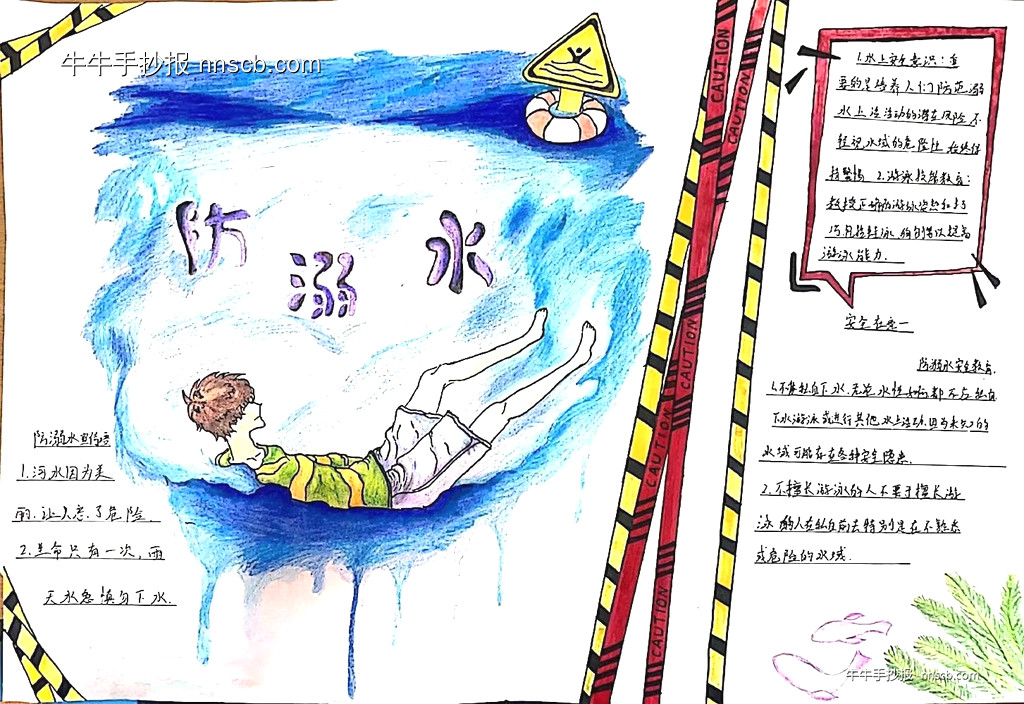 牛牛手抄报 nnscb.com
防溺水
防溺水宣传
1.河水因为美
丽.让人忘了危险
2.生命只有一次,雨
天水急慎勿下水.
CAUTION
CAUTION
CAUTION
CAUTION
CAUTION
1.水上安全意识:重
要的是培养人们防范溺
水上活动的潜在风险不
轻视水域的危险性
持警惕 2.游泳技能教育:
教授正确的游泳姿势和技
巧 以提高
游泳能力.
安全在意一
防溺水安全教育.
1.不准私自下水.无论水性如何都不应私自
下水游泳或进行其他水上活动.因为未知的
水域可能存在各种安全隐患.
2.不擅长游泳的人不要于擅长游
泳的人在私自前去特别是在不熟悉
或危险的水域.
牛牛手抄报 nnscb.com